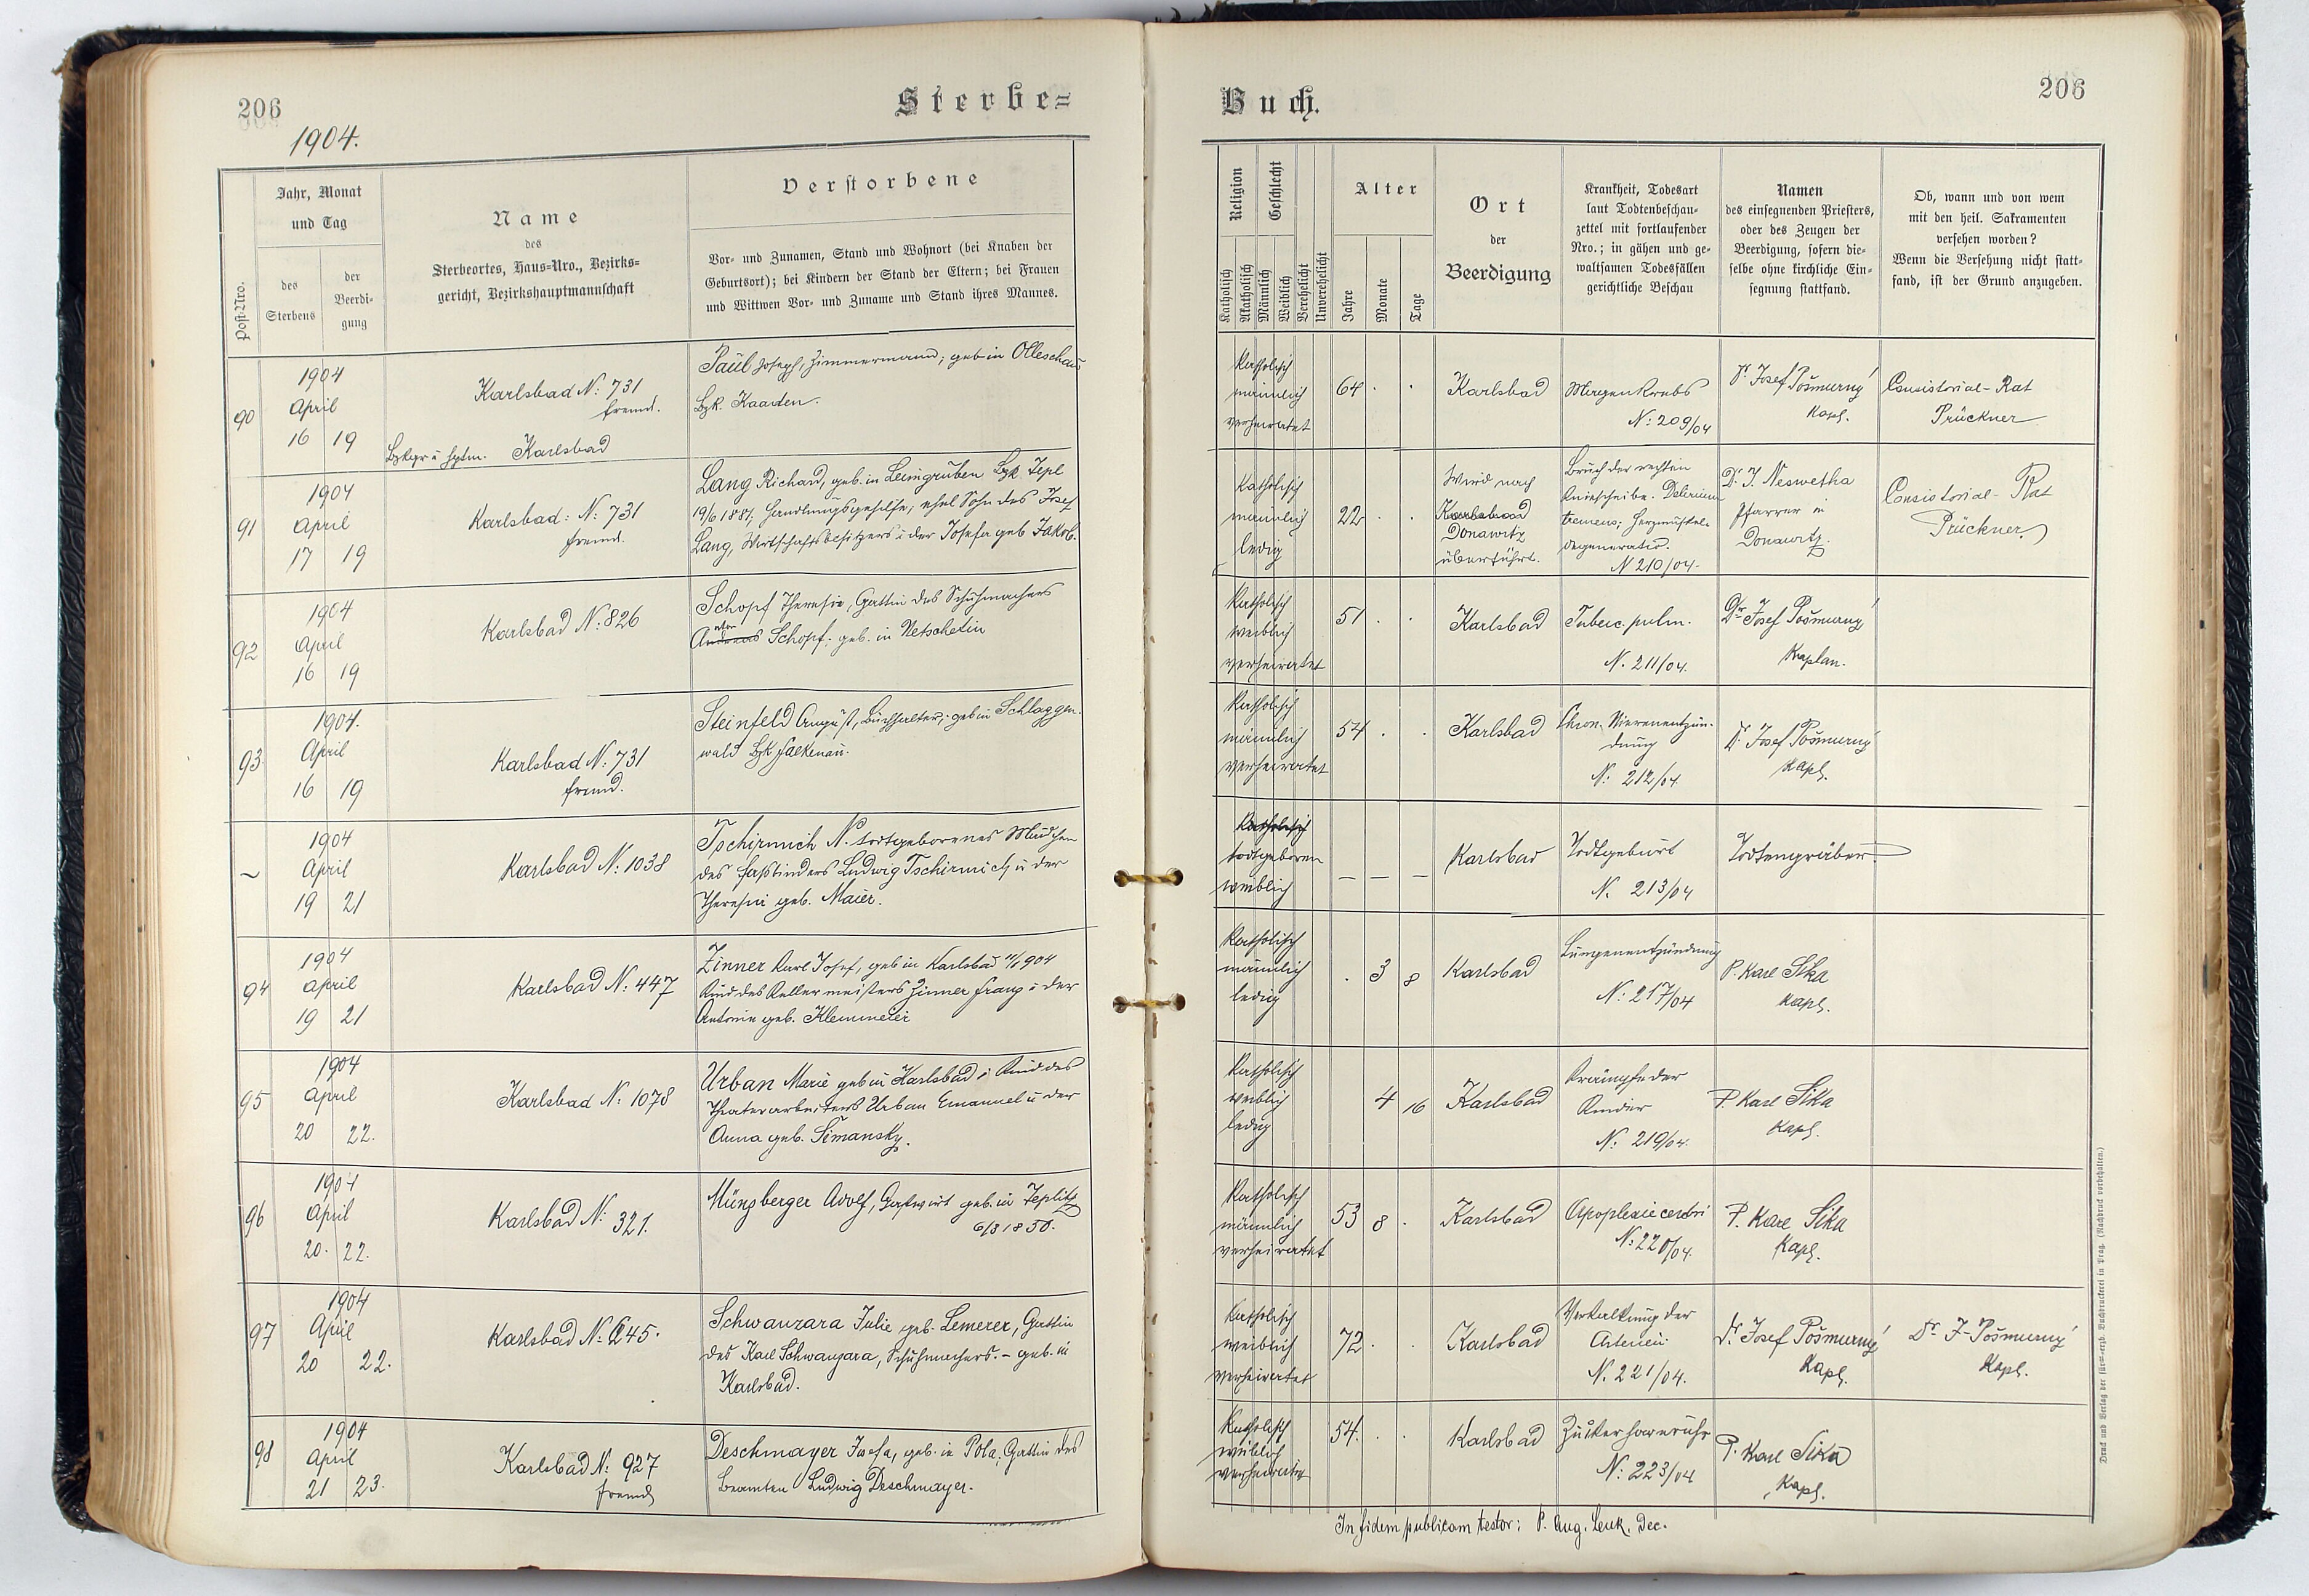 206
Sterbe=
1904.
Post-Nro.
Jahr, Monat
und Tag
des
Sterbens
der
Beerdi-
gung
Name
des
Sterbeortes, Haus-Nro., Bezirks-
gericht, Bezirkshauptmannschaft
Verstorbene
Vor- und Zunamen, Stand und Wohnort (bei Knaben der
Geburtsort); bei Kindern der Stand der Eltern; bei Frauen
und Wittwen Vor- und Zuname und Stand ihres Mannes.
90
1904
April
16 19
Karlsbad N: 731
fremd.
Bzkgr u hptm. Karlsbad
Paul Joseph, Zimmermann; geb in Olleschau
Bzk. Kaaden.
91
1904
April
17 19
Karlsbad: N: 731
fremd.
Lang Richard, geb. in Leimgruben Bzk Tepl
19/6 1881; Handlungsgehilfe, ehel Sohn des Josef
Lang, Wirtschaftsbesitzers u der Josefa geb Jakob.
92
1904
April
16 19
Karlsbad N: 826
Schopf Theresia, Gattin des Schuhmachers
Anton Schopf; geb. in Netschetin
93
1904.
April
16 19
Karlsbad N: 731
fremd.
Steinfeld August, Buchhalter; geb in Schlaggen-
wald Bzk Falkenau.
–
1904
April
19 21
Karlsbad N: 1038
Tschirnich N. todtgeborenes Mädchen
des Fassbinders Ludwig Tschirnich u der
Theresia geb. Maier.
94
1904
April
19 21
Karlsbad N: 447
Zinner Karl Josef, geb in Karlsbad 11/1 904
Kind des Kellermeisters Zinner Franz u der
Antonie geb. Klemmeier
95
1904
April
20 22.
Karlsbad N: 1078
Urban Marie geb in Karlsbad; Kind des
Theaterarbeiters Urban Emanuel u der
Anna geb. Simansky.
96
1904
April
20. 22.
Karlsbad N: 321.
Münzberger Adolf, Gastwirt geb. in Teplitz
6/8 1850.
97
1904
April
20 22.
Karlsbad N: 245.
Schwanzara Julie geb. Lemerer, Gattin
des Karl Schwanzara, Schuhmachers. – geb. in
Karlsbad.
98
1904
April
21 23.
Karlsbad N: 927
fremd
Deschmayer Josefa, geb. in Pola; Gattin des
Beamten Ludwig Deschmayer.
Buch.
206
Religion
Geschlecht
Katholisch
Akatholisch
Männlich
Weiblich
Verehelicht
Unverehelicht
Alter
Jahre
Monate
Tage
Ort
der
Beerdigung
Krankheit, Todesart
laut Todtenbeschau-
zettel mit fortlaufender
Nro.; in gähen und ge-
waltsamen Todesfällen
gerichtliche Beschau
Namen
des einsegnenden Priesters,
oder des Zeugen der
Beerdigung, sofern die-
selbe ohne kirchliche Ein-
segnung stattfand.
Ob, wann und von wem
mit den heil. Sakramenten
versehen worden?
Wenn die Versehung nicht statt-
fand, ist der Grund anzugeben.
Katholisch
männlich
verheiratet
64
Karlsbad
Magenkrebs
N: 209/04
Dr. Josef Pošmurný
Kapl.
Consistorial-Rat
Prückner
Katholisch
männlich
ledig
22
Wird nach
Karlsbad
Donawitz
überführt.
Bruch der rechten
Kniescheibe. Delirium
tremens; Herzmuskel-
degeneratio.
N 210/04.
Dr. J. Neswetha
Pfarrer in
Donawitz.
Consistorial-Rat
Prückner
Katholisch
weiblich
verheiratet
51
Karlsbad
Tuberc. pulm.
N. 211/04.
Dr Josef Pošmurný
Kaplan.
Katholisch
männlich
verheiratet
54
Karlsbad
Chron. Nierenentzün-
dung
N: 212/04
Dr. Josef Pošmurný
Kapl.
Katholisch
todtgeboren
weiblich
– – –
Karlsbad
Todtgeburt
N. 213/04
Todtengräber.
Katholisch
männlich
ledig
3 8
Karlsbad
Lungenentzündung
N: 217/04
P. Karl Sika
Kapl.
Katholisch
weiblich
ledig
4 16
Karlsbad
Krämpfe der
Kinder
N: 219/04.
P. Karl Sika
Kapl.
Katholisch
männlich
verheiratet
53 8
Karlsbad
Apoplexie cerebri
N: 220/04.
P. Karl Sika
Kapl.
Katholisch
weiblich
verheiratet
72
Karlsbad
Verkalkung der
Arterien
N. 221/04.
Dr. Josef Pošmurný
Kapl.
Dr. J. Pošmurný
Kapl.
Katholisch
weiblich
verheiratet
54.
Karlsbad
Zuckerharnruhr
N: 223/04
P. Karl Sika
Kapl.
In fidem publicam testor: P. Aug. Lenk, Dec.
Druck und Verlag der fürst-erzb. Buchdruckerei in Prag. (Nachdruck vorbehalten.)